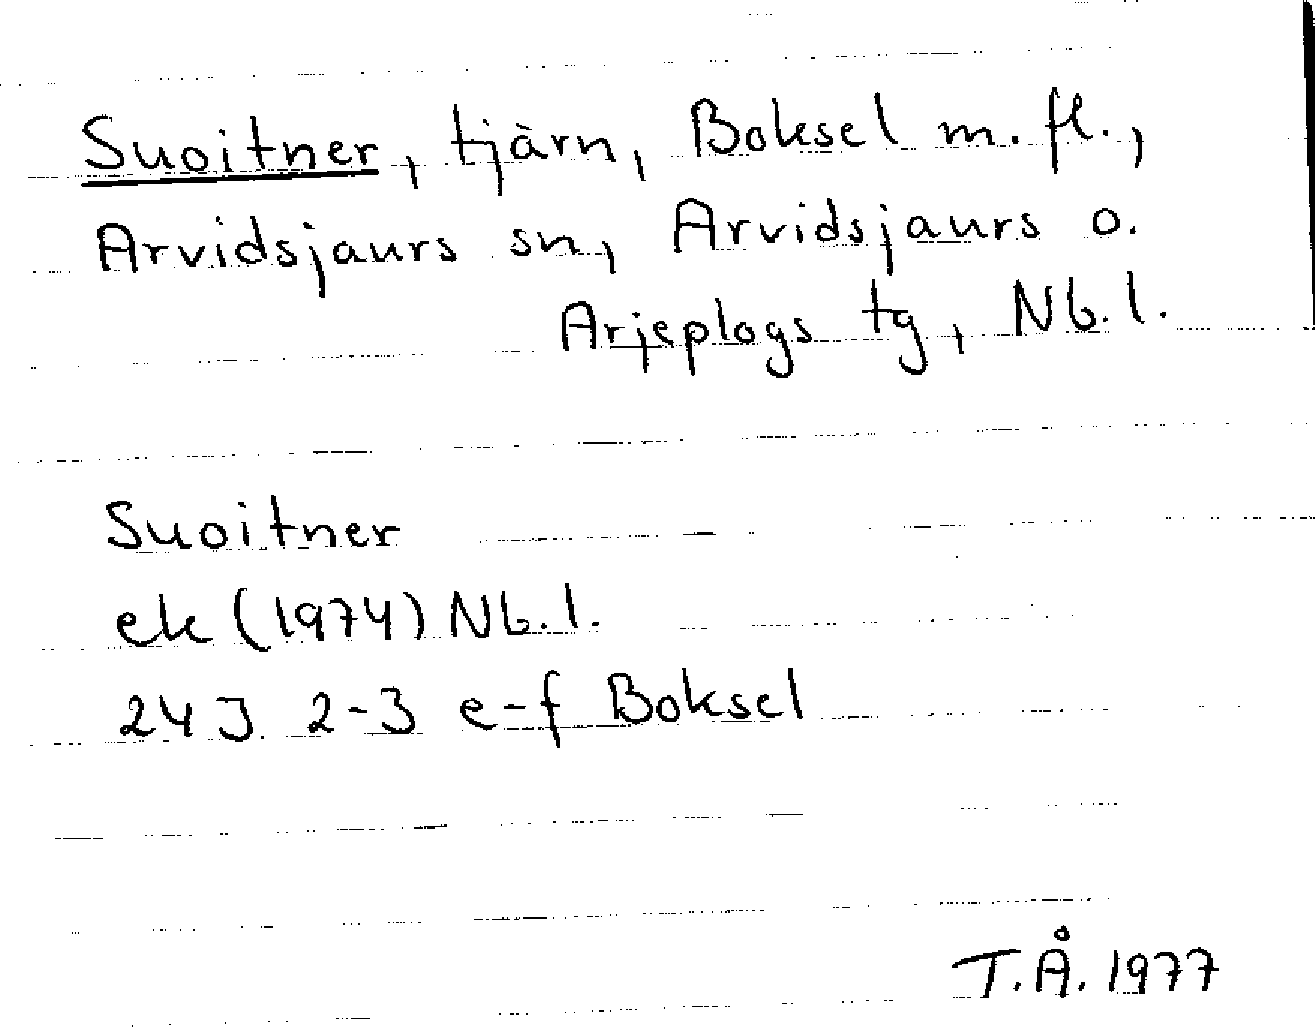 Suoitner, tjärn, Boksel m. fl.,
Arvidsjaurs sn, Arvidsjaurs o.
Arjeplogs tg, Nb. l.
Suoitner
ek (1974) Nb. l.
24J 2-3 e-f Boksel
T.Å. 1977